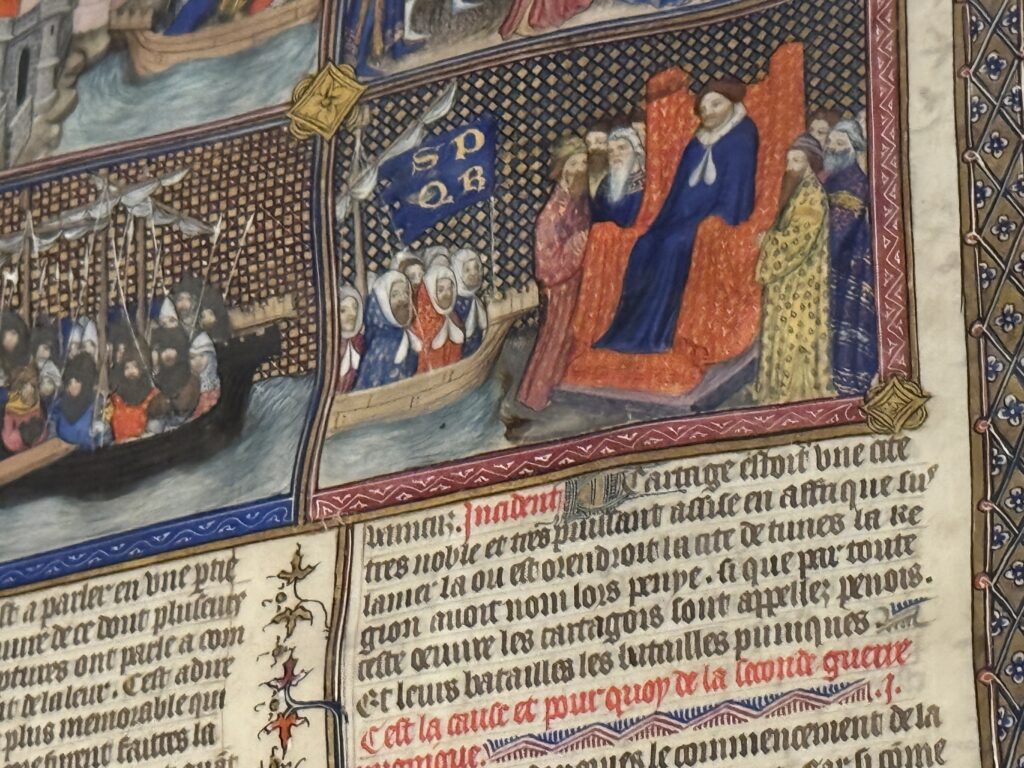 S P
Q R
st a parler en vne ptie
de ce dont pluseurs
ptures ont parle a com
de la leur. Cest a dire
plus memorable que
furent faittes la
premier. Incident
Cartage estoit vne cite
tres noble et tres puissant assise en affrique sus
la mer la ou est orendroit la cite de tunes la re
gion auoit nom lors penye. si que par toute
ceste oeuure les cartagois sont appellez penois.
Et leurs batailles les batailles puniques
Cest la cause et pour quoy de la seconde guerre
punique. .I.
le commencement de la
Car si come